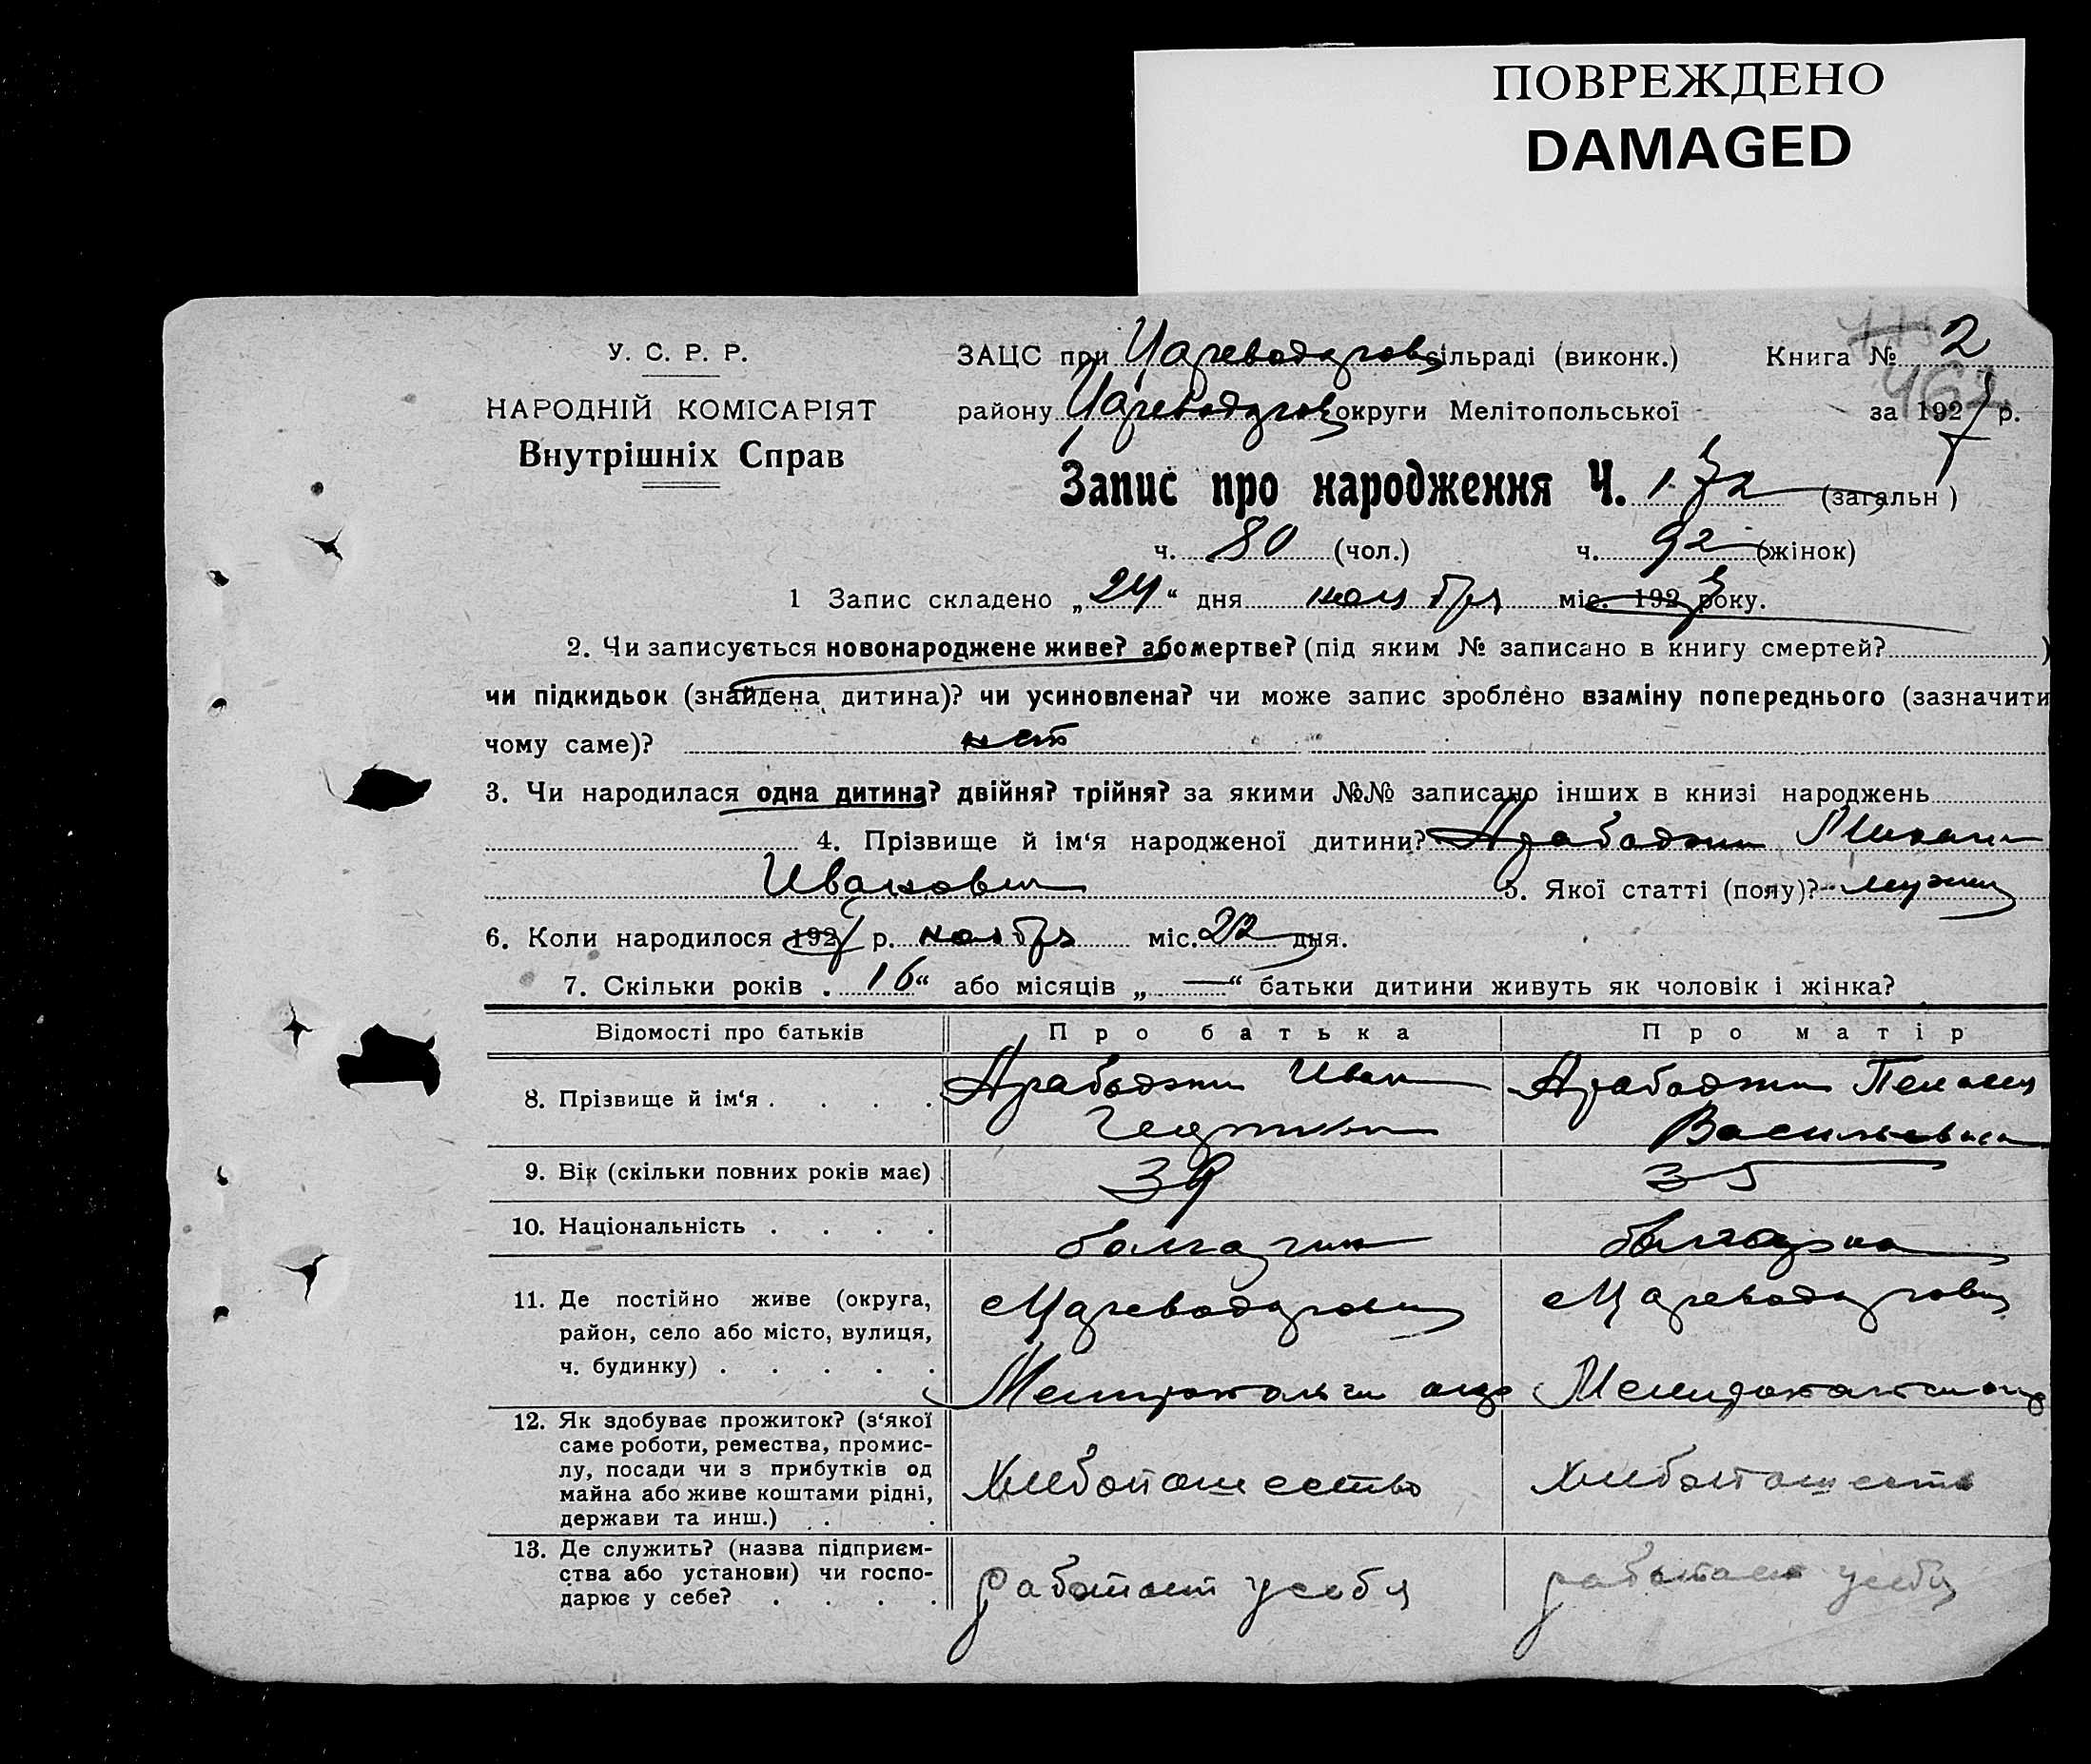 ПОВРЕЖДЕНО
DAMAGED
У. С. Р. Р.
НАРОДНІЙ КОМІСАРІЯТ
Внутрішніх Справ
ЗАЦС при Цареводаровск сільраді (виконк.) Книга № 2
району Цареводаровск округи Мелітопольської за 1927 р.
Запис про народження Ч. 172 (загальн)
ч. 80 (чол.) ч. 92 (жінок)
1 Запис складено „24“ дня ноября міс. 1927 року.
2. Чи записується новонароджене живе? або мертве? (під яким № записано в книгу смертей? )
чи підкидьок (знайдена дитина)? чи усиновлена? чи може запис зроблено взаміну попереднього (зазначити
чому саме)? нет
3. Чи народилася одна дитина? двійня? трійня? за якими №№ записано інших в книзі народжень
4. Прізвище й ім‘я народженої дитини? Арабаджи Михаил
Иванович 5. Якої статті (полу)? мужск
6. Коли народилося 1927 р. ноября міс. 22 дня.
7. Скільки років „16“ або місяців „—“ батьки дитини живуть як чоловік і жінка?
Відомості про батьків Про батька Про матір
8. Прізвище й ім‘я . . . . Арабаджи Иван Арабаджи
Васильевна
9. Вік (скільки повних років має) 39 35
10. Національність . . . . болгарин болгарка
11. Де постійно живе (округа,
район, село або місто, вулиця,
ч. будинку) . . . . .
12. Як здобуває прожиток? (з‘якої
саме роботи, ремества, промис-
лу, посади чи з прибутків од
майна або живе коштами рідні,
держави та инш.) . . Хлебопашество Хлебопашество
13. Де служить? (назва підприєм-
ства або установи) чи госпо-
дарює у себе? . . . . работает у себя работает у себя